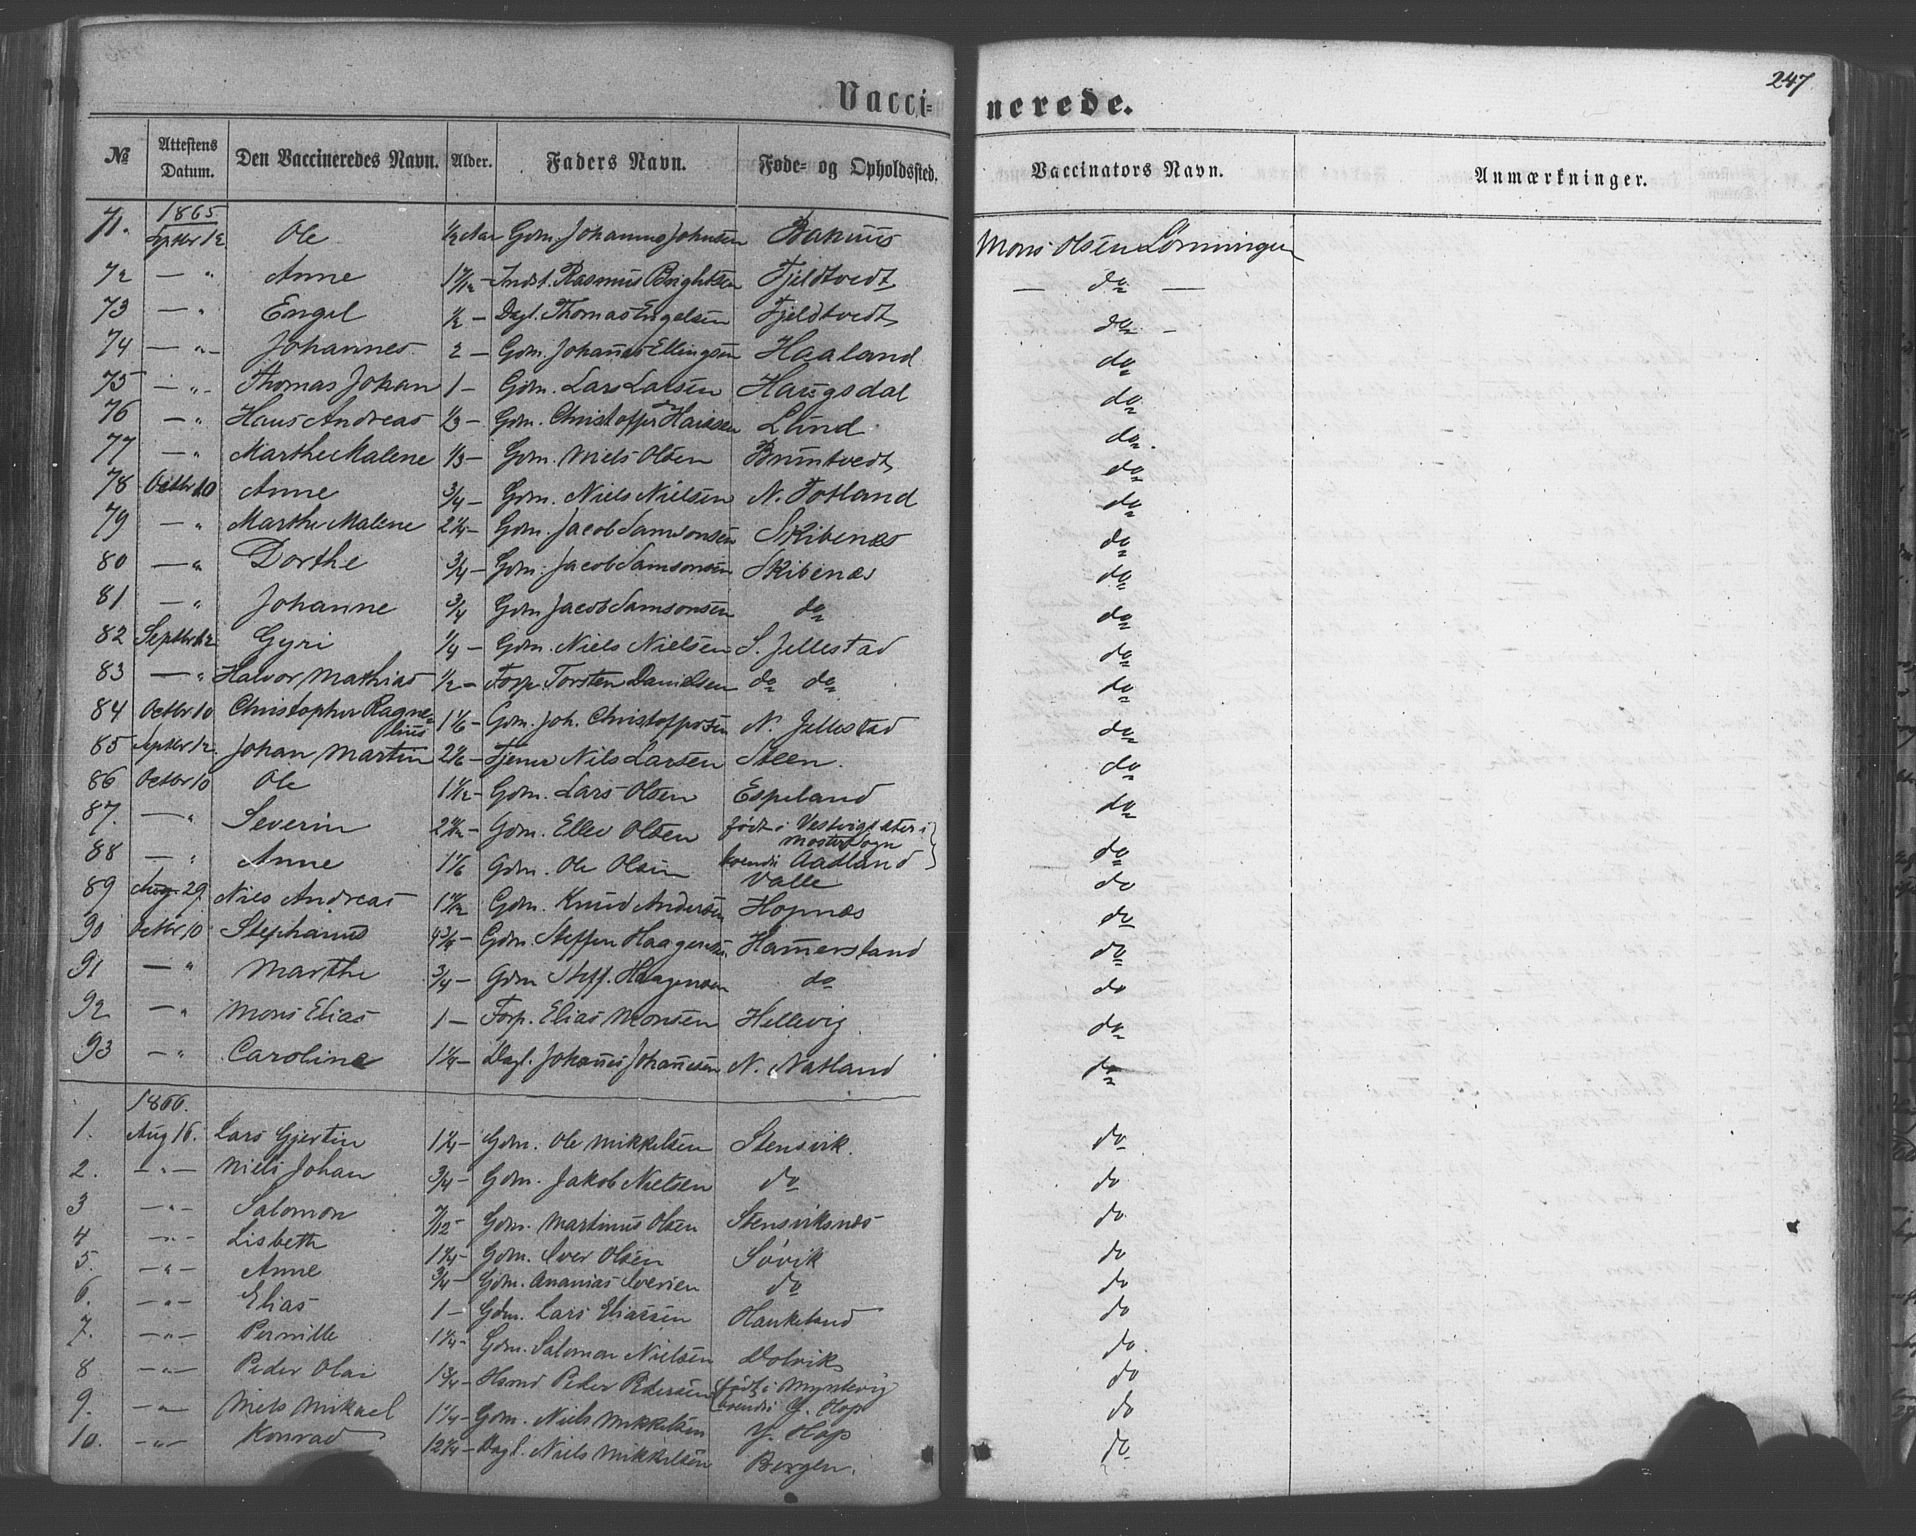 247
Vacci= nerede.
№ Attestens Datum. Den Vaccineredes Navn. Alder. Faders Navn. Føde= og Opholdssted. Vaccinators Navn. Anmærkninger.
1865
71. Septbr 12 Ole 1/2 Aar Gdm. Johannes Johnsen Mons Olsen
72 — " Anne Indst. Rasmus Brightsen Fjeldtvedt — do —
73 — " Engel 1/2 — Dagl. Thomas Engelsen Fjeldtvedt do —
74 — " — Johannes 2 — Gdm. Johanes Ellingsen Haaland do
75 — " — Thomas Johan 1 — Gdm. Lars Larsen Haugsdal do
76 — " Hans Andreas 1/3 — Gdm. Christoffer Hanssen Lund do
77 — " Marthe Malene 1/3 — Gdm. Niels Olsen do
78 Octbr 10 Anne 3/4 — Gdm. Niels Nielsen N. Totland do
79 — " Marthe Malene 2 1/4 — Gdm. Jacob Samsonsen Skibenæs do
80 — " Dorthe 3/4 — Gdm. Jacob Samsonsen Skibenæs do
81 — " Johanne 3/4 Gdm Jacob Samsonsen do do
82 Septbr 12 Gyri 1/4 — Gdm. Niels Nielsen S. Jellestad do
83 — " Halvor Mathias 1/2 — Forp. Torsten Danielsen do do do
84 Octbr 10 Christopher Ragne= 1 1/6 — Gdm. Joh. Christoffersen N. Jellestad do
lius
85 Septbr 12 Johan Martin 2 1/6 — Tjener Nils Larsen Steen. do
86 Octbr 10 Ole 1 1/12 — Gdm. Lars Olsen Espeland do
87. — " Severin Gdm. Ellev Olsen født i i do
Moster Sogn
88 — " Anne 1 1/6 Gdm. Ole Olsen boende Aadland do
Valle
89 Aug. 29. Niels Andreas Gdm. Knud Andersen Hopnæs do
90 Octbr 10 Stephanus 4 3/4 — Gdm. Steffen Haagensen Hamersland do
91 — " Marthe 3/4 — Gdm Steff. Haagensen do do
92 — " Mons Elias 1 — Forp. Elias Monsen Hellevig do
93 — " Caroline 1 1/4 — Dagl. Johanes Johanesen N. Natland do
1866.
1. Aug 16. Lars Gjertin 1 1/4 — Gdm. Ole Mikkelsen Stensvik. do
2. — " — Niels Johan 3/4 — Gdm. Jakob Nielsen do do
3 — " — Salomon 7/12 — Gdm. Martinus Olsen Stensviksnæs do
4 — " — Lisbeth 1 1/4 — Gdm. Iver Olsen Søvik do
5. — " — Anne 3/4 — Gdm. Ananias Iversen do do
6. — " — Elias 1 — Gdm. Lars Eliassen Haukeland do
7. — " — Pernille 1 1/4 — Gdm. Salomon Nielsen Dolvik do
8 — " — Peder Olai 1 3/4 — Hsmd Peder Pedersen født i Myrkvig do
boende Y. Hop
9. — " — Niels Mikael 1 1/4 — Gdm. Niels Mikkelsen Y. Hop do
10. — " — Konrad 12 1/4 — Dagl. Niels Mikkelsen Bergen. do